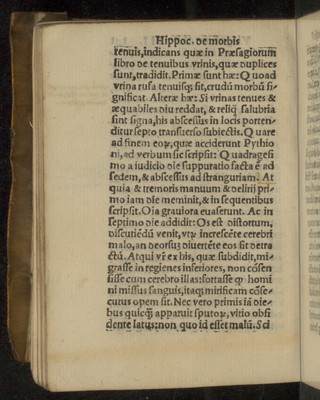 Hippoc. de morbis
tenuis, indicans quæ in Præsagiorum
libro de tenuibus vrinis, quæ duplices
sunt, tradidit. Primæ sunt hæ: Quoad
vrina rufa tenuisq; sit, crudũ morbũ si-
gnificat. Alteræ hæ: Si vrinas tenues &
æquabiles diu reddat, & reliq̃ salubria
sint signa, his abscessus in locis porten-
ditur septo transuerso subiectis. Quare
ad finem eoꝝ, quæ acciderunt Pythio
ni, ad verbum sic scripsit: Quadragesi
mo a iudicio die suppuratio facta ẽ ad
sedem, & abscessus ad stranguriam. At
quia & tremoris manuum & delirij pri-
mo iam die meminit, & in sequentibus
scripsit. Oĩa grauiora euaserunt. Ac in
septimo die addidit: Os est distortum,
discutiẽdũ venit, vtrũ increscẽte cerebri
malo, an deorsuz diuertẽte eos sit detra
ctũ. Atqui vr̃ ex his, quæ subdidit, mi-
grasse in regienes inferiores, non cõsen
sisse cum cerebro illas: fortasse ꝙ homi
ni missus sanguis, itaq; mirificam cõse-
cutus opem sit. Nec vero primis iã die-
bus quicq̃ apparuit sputoꝝ, vitio obsi
dente latus: non quo id esset malũ. Sci